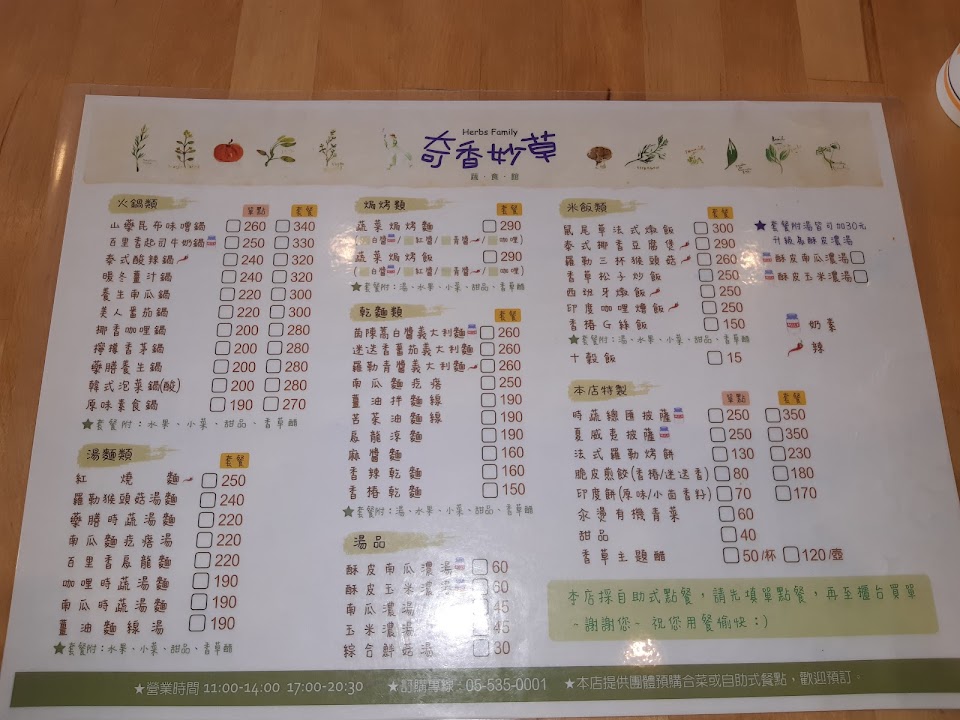 Herbs Family
奇香妙草
蔬·食·館
火鍋類
單點 套餐
山藥昆布味噌鍋 260 340
百里香起司牛奶鍋 250 330
泰式酸辣鍋 240 320
暖冬薑汁鍋 240 320
養生南瓜鍋 220 300
美人番茄鍋 220 300
椰香咖哩鍋 200 280
檸檬香茅鍋 200 280
藥膳養生鍋 200 280
韓式泡菜鍋(酸) 200 280
原味素食鍋 190 270
★套餐附:水果、小菜、甜品、香草醋
湯麵類
套餐
紅燒麵 250
羅勒猴頭菇湯麵 240
藥膳時蔬湯麵 220
南瓜麵疙瘩湯 220
百里香烏龍麵 220
咖哩時蔬湯麵 190
南瓜時蔬湯麵 190
薑油麵線湯 190
★套餐附:水果、小菜、甜品、香草醋
焗烤類
套餐
蔬菜焗烤麵 290
(白醬/紅醬/青醬/咖哩)
蔬菜焗烤飯 290
(白醬/紅醬/青醬/咖哩)
★套餐附:湯、水果、小菜、甜品、香草醋
乾麵類
套餐
茵陳蒿白醬義大利麵 260
迷迭香蕃茄義大利麵 260
羅勒青醬義大利麵 260
南瓜麵疙瘩 250
薑油拌麵線 190
苦茶油麵線 190
烏龍涼麵 190
麻醬麵 160
香辣乾麵 160
香椿乾麵 150
★套餐附:湯、水果、小菜、甜品、香草醋
湯品
酥皮南瓜濃湯 60
酥皮玉米濃湯 60
南瓜濃湯 45
玉米濃湯 45
綜合鮮菇湯 30
米飯類
套餐
鼠尾草法式燉飯 300
泰式椰香豆腐煲 290
羅勒三杯猴頭菇 260
香草松子炒飯 250
西班牙燉飯 250
印度咖哩燴飯 250
香椿G絲飯 150
★套餐附:湯、水果、小菜、甜品、香草醋
十穀飯 15
★套餐附湯皆可加30元
升級為酥皮濃湯
酥皮南瓜濃湯
酥皮玉米濃湯
奶素
辣
本店特製
單點 套餐
時蔬總匯披薩 250 350
夏威夷披薩 250 350
法式羅勒烤餅 130 230
脆皮煎餃(香椿/迷迭香) 80 180
印度餅(原味/小茴香籽) 70 170
汆燙有機青菜 60
甜品 40
香草主題醋 50/杯 120/壺
本店採自助式點餐,請先填單點餐,再至櫃台買單
~謝謝您~ 祝您用餐愉快:)
★營業時間 11:00-14:00 17:00-20:30 ★訂購專線:05-535-0001 ★本店提供團體預購合菜或自助式餐點,歡迎預訂.